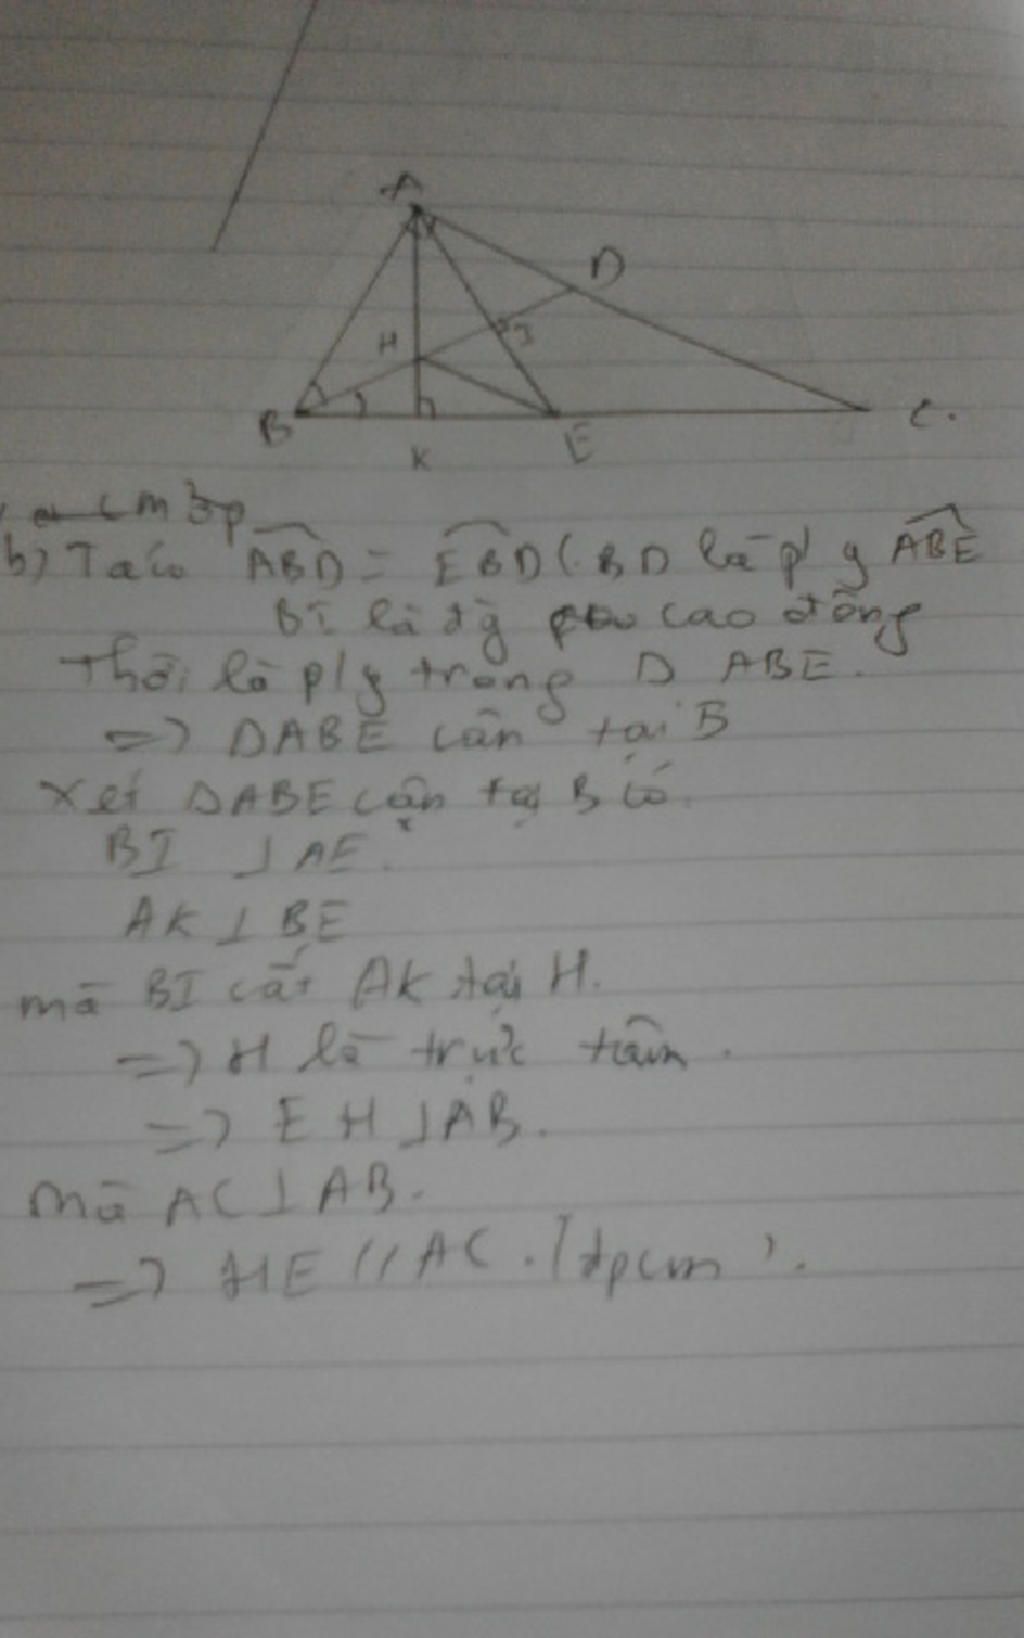 A
D
H
I
B
K
E
C.
b) Ta có ABD = EBD (BD là p/g ABE
BI là đg cao đồng
thời là p/g trong Δ ABE.
=> ΔABE cân tại B
Xét ΔABE cân tại B có
BI ⊥ AE.
AK ⊥ BE
mà BI cắt AK tại H.
=> H là trực tâm.
=> EH ⊥ AB.
mà AC ⊥ AB.
=> HE // AC. (đpcm).